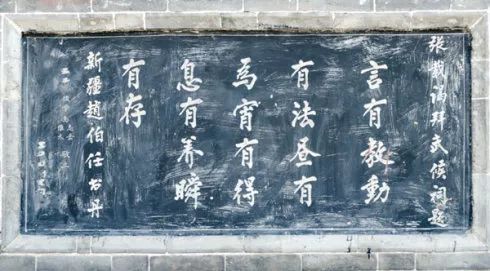 張載謁拜武侯祠題
言有教動
有法昼有
為宵有得
息有养瞬
有存
新疆趙伯任书丹